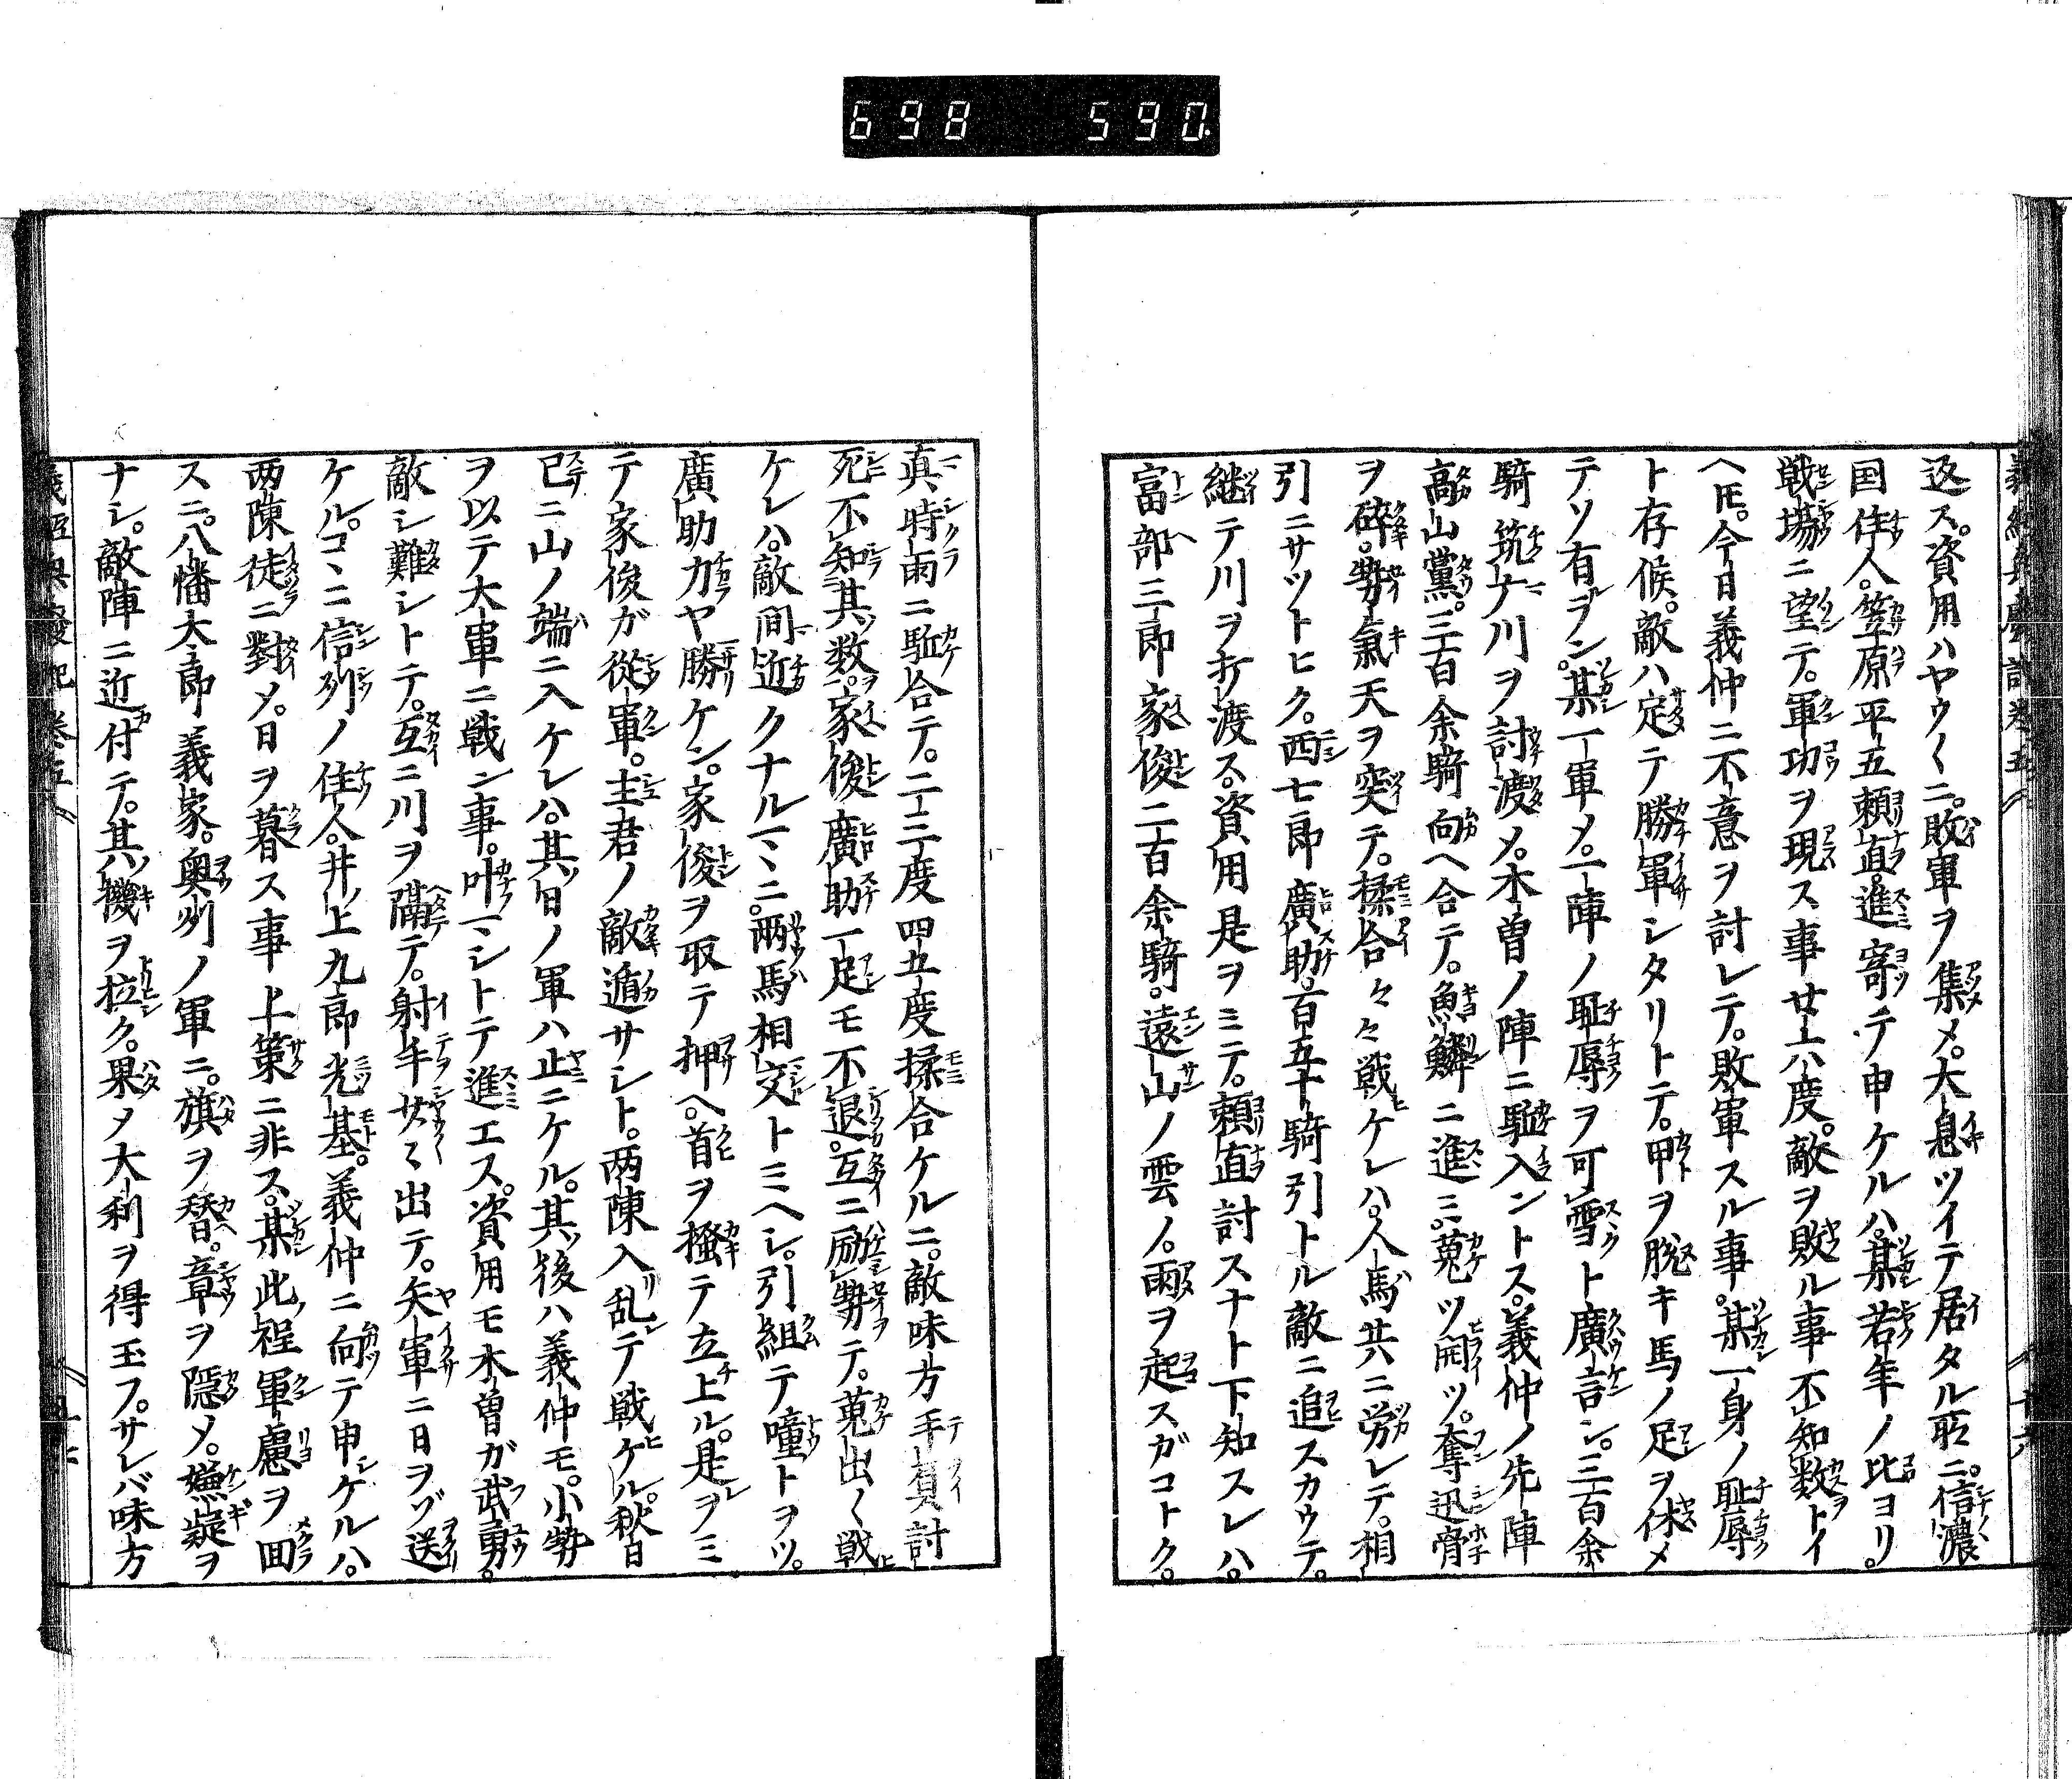 698 590.
返ス。資用ハヤウ〱ニ。敗軍ヲ集メ。大息ツイテ居タル所ニ。信濃
国住人。笠原平五頼直。進寄テ申ケルハ。某若年ノ比ヨリ。
戦場ニ望テ。軍功ヲ現ス事廿八度。敵ヲ敗ル事不知数トイ
ヘ𪜈。今日義仲ニ不意ヲ討レテ。敗軍スル事。某一身ノ耻辱
ト存候。敵ハ定テ勝軍シタリトテ。甲ヲ脱キ馬ノ足ヲ休メ
テソ有ラン。某一軍メ。一陣ノ耻辱ヲ可雪ト廣言シ。三百余
騎筑ナ川ヲ討渡メ。木曽ノ陣ニ駈入ントス。義仲ノ先陣
高山黨。三百余騎向ヘ合テ。魚鱗ニ進ミ。蒐ツ開ツ。奮迅骨
ヲ碎。勢氣天ヲ突テ。揉合々々戦ケレハ。人馬共ニ労レテ。相
引ニサツトヒク。西七郎廣助。百五十騎引トル敵ニ追スカウテ。
継テ川ヲ打渡ス。資用是ヲミテ。頼直討スナト下知スレハ。
富部三郎家俊二百余騎。遠山ノ雲ノ。雨ヲ起スガコトク。
真時雨ニ駈合テ。二三度四五度揉合ケルニ。敵味方手負討
死不知其数。家俊廣助一足モ不退。互ニ励勢テ。蒐出〱戦
ケレハ。敵間近クナルマヽニ。兩馬相交トミヘシ。引組テ噇トヲツ。
廣助力ヤ勝ケン。家俊ヲ取テ押ヘ。首ヲ掻テ立上ル。是ヲミ
テ家俊ガ從軍。主君ノ敵遁サシト。两陳入乱テ戦ケル。秋日
已ニ山ノ端ニ入ケレハ。其日ノ軍ハ止ニケル。其後ハ義仲モ。小勢
ヲ以テ大軍ニ戦ン事。叶マシトテ進エス。資用モ木曽ガ武勇。
敵シ難シトテ。互ニ川ヲ隔テ。射手少々出テ。矢軍ニ日ヲゾ送
ケル。コヽニ信州ノ住人。井上九郎光基。義仲ニ向テ申ケルハ。
两陳徒ニ對メ。日ヲ暮ス事上策ニ非ス。某此程軍慮ヲ囬
スニ。八幡太郎義家。奥州ノ軍ニ。旗ヲ替。章ヲ隠メ。嫌疑ヲ
ナシ。敵陣ニ近付テ。其機ヲ拉ク。果メ大利ヲ得玉フ。サレバ味方